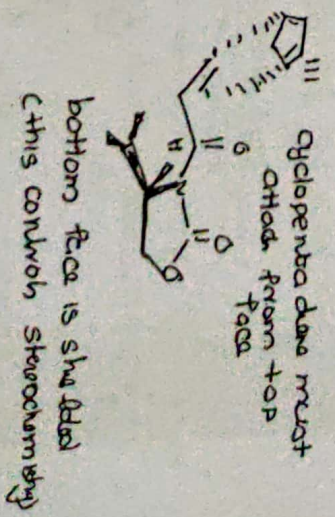 cyclopentadiene must
attack from top
face
O
H
N
O
O
bottom face is shielded
(this controls stereochemistry)